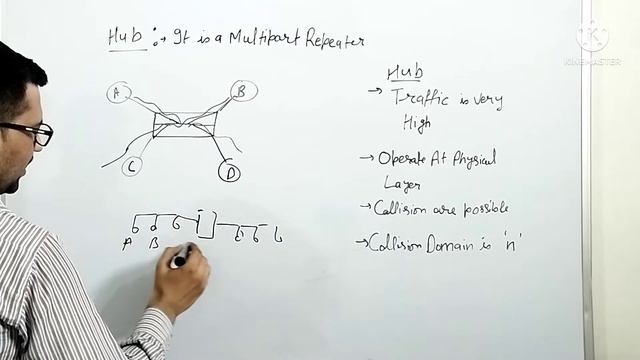 Hub :→ It is a Multiport Repeater
KINEMASTER
A
B
C
D
Hub
→ Traffic is very
High
→ Operate At Physical
Layer
→ Collision are possible
→ Collision Domain is 'n'
A B